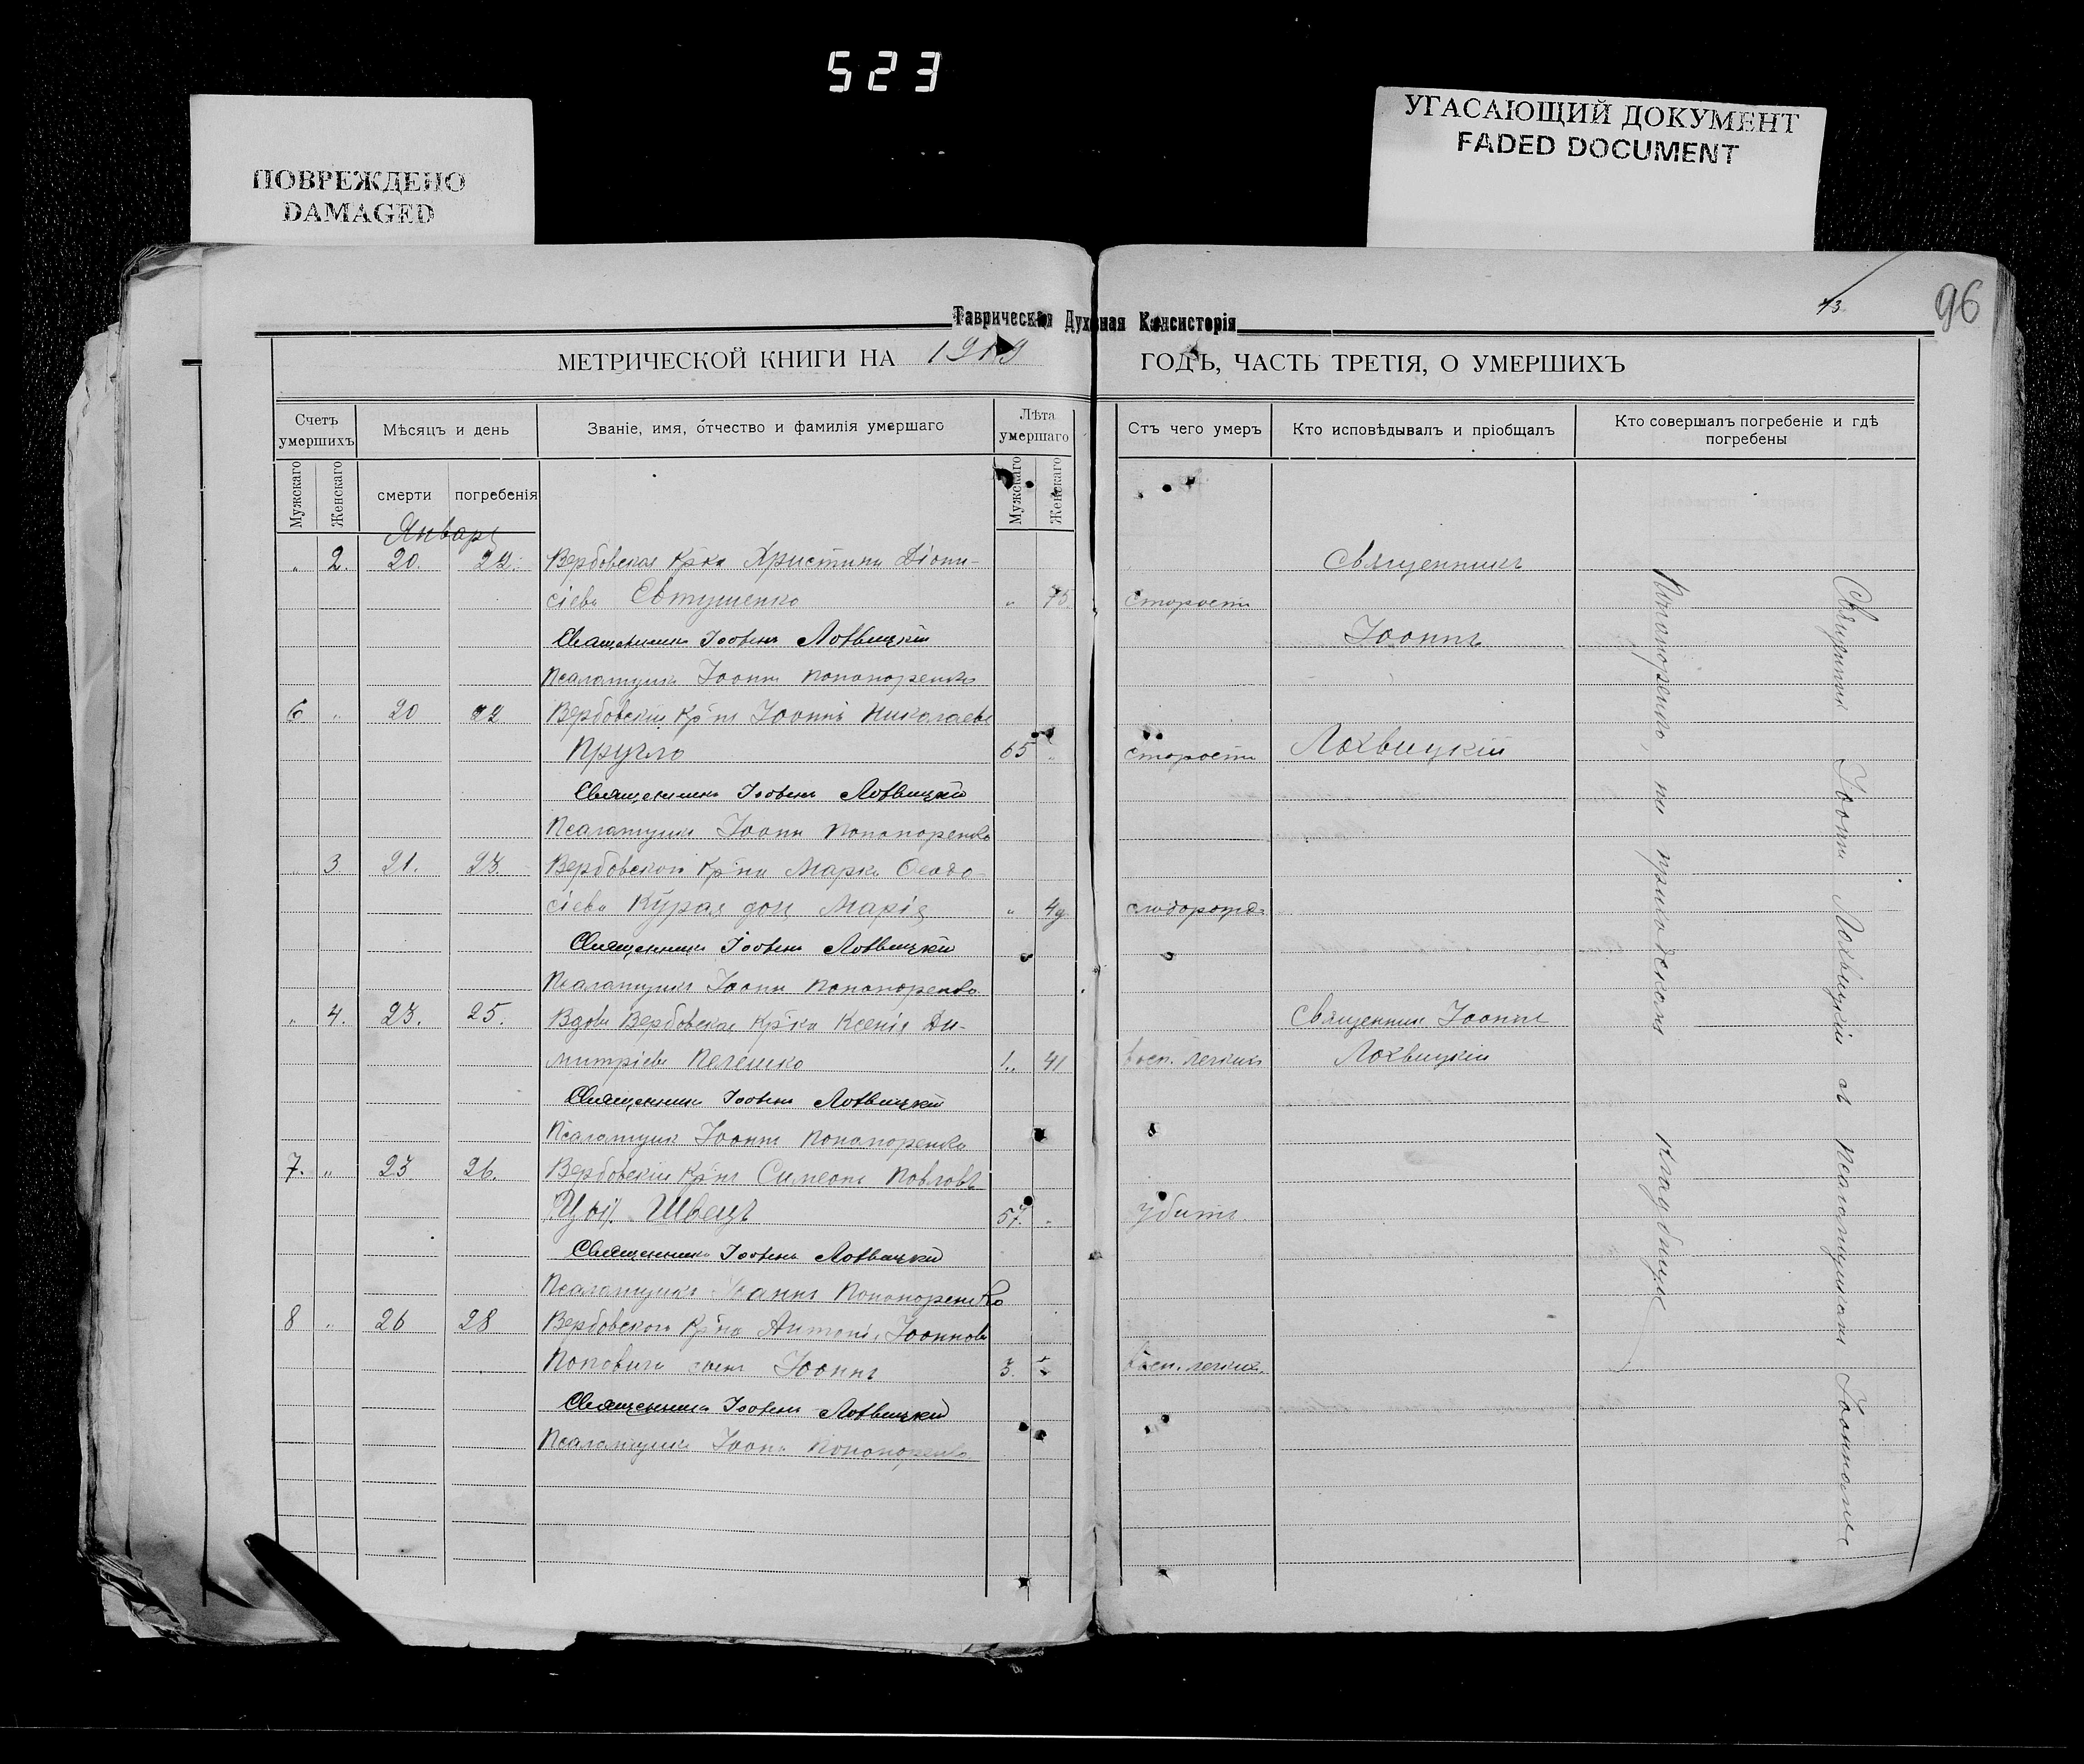 523
ПОВРЕЖДЕНО
DAMAGED
УГАСАЮЩИЙ ДОКУМЕНТ
FADED DOCUMENT
96
Таврическая Духовная Консисторія
МЕТРИЧЕСКОЙ КНИГИ НА 1909 ГОДЪ, ЧАСТЬ ТРЕТІЯ, О УМЕРШИХЪ
Счетъ умершихъ
Мѣсяцъ и день
Званіе, имя, отчество и фамилія умершаго
Лѣта умершаго
Отъ чего умеръ
Кто исповѣдывалъ и пріобщалъ
Кто совершалъ погребеніе и гдѣ погребены
Мужскаго
Женскаго
смерти
погребенія
Мужскаго
Женскаго
Январь
" 2. 20. 22. Вербовская кр-ка Христина Діони-
сіева Евтушенко " 75. старости
Священникъ Іоаннъ Лохвицкій
Псаломщикъ Іоаннъ Пономаренко
6 " 20 22 Вербовскій кр-нъ Іоаннъ Николаевъ
Пругло 65 " старости
Священникъ Іоаннъ Лохвицкій
Псаломщикъ Іоаннъ Пономаренко
Священникъ
Іоаннъ
Лохвицкій
" 3. 21. 23. Вербовскаго кр-на Марка Ѳеодо-
сіева Курая дочь Марія "
Священникъ Іоаннъ Лохвицкій
Псаломщикъ Іоаннъ Пономаренко
" 4. 23. 25. Вдова Вербовская кр-ка Ксенія Ди- Священникъ Іоаннъ
митріева Пелешко 41 восп. легкихъ Лохвицкій
Священникъ Іоаннъ Лохвицкій
Псаломщикъ Іоаннъ Пономаренко
7. " 23 26. Вербовскій кр-нъ Симеонъ Павловъ
Швецъ 57. " убитъ.
Священникъ Іоаннъ Лохвицкій
Псаломщикъ Іоаннъ Пономаренко
8 " 26 28 Вербовскаго кр-на Антонія Іоаннова
Поповича сынъ Іоаннъ 3. восп. легкихъ
Священникъ Іоаннъ Лохвицкій
Псаломщикъ Іоаннъ Пономаренко
Священникъ Іоаннъ Лохвицкій съ псаломщикомъ Іоанномъ
Пономаренко, на приходскомъ кладбищѣ